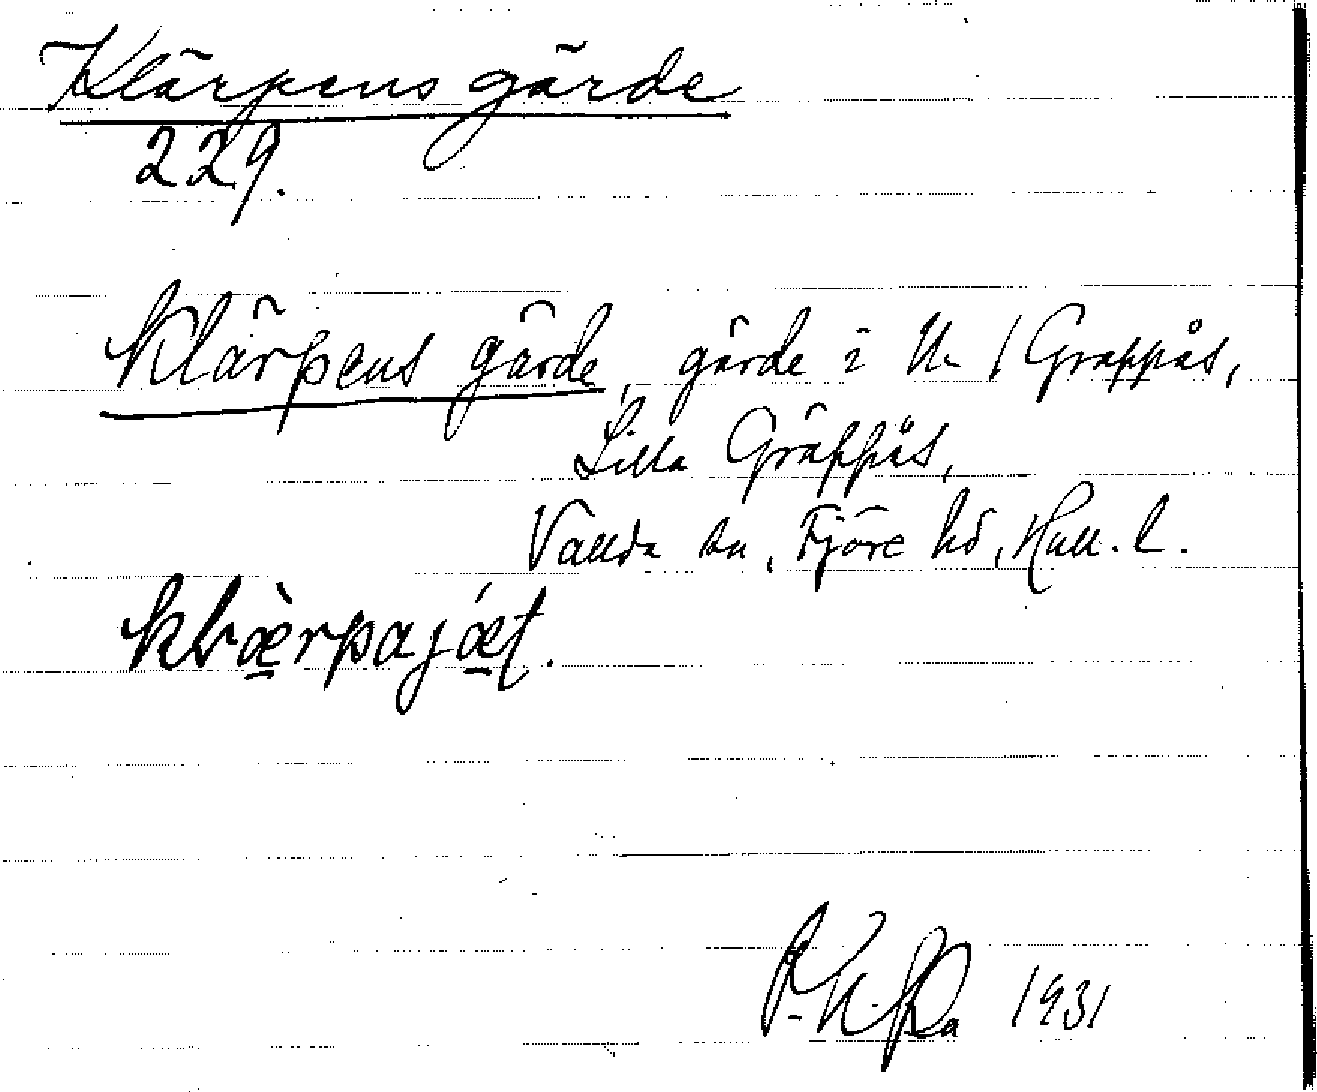 Klärpens gärde
229.
Klärpens gärde, gärde i N. 1 Gräppås,
Lilla Gräppås,
Vallda sn, Fjäre hd, Hall. l.
klæ̀rpajǽt.
1931